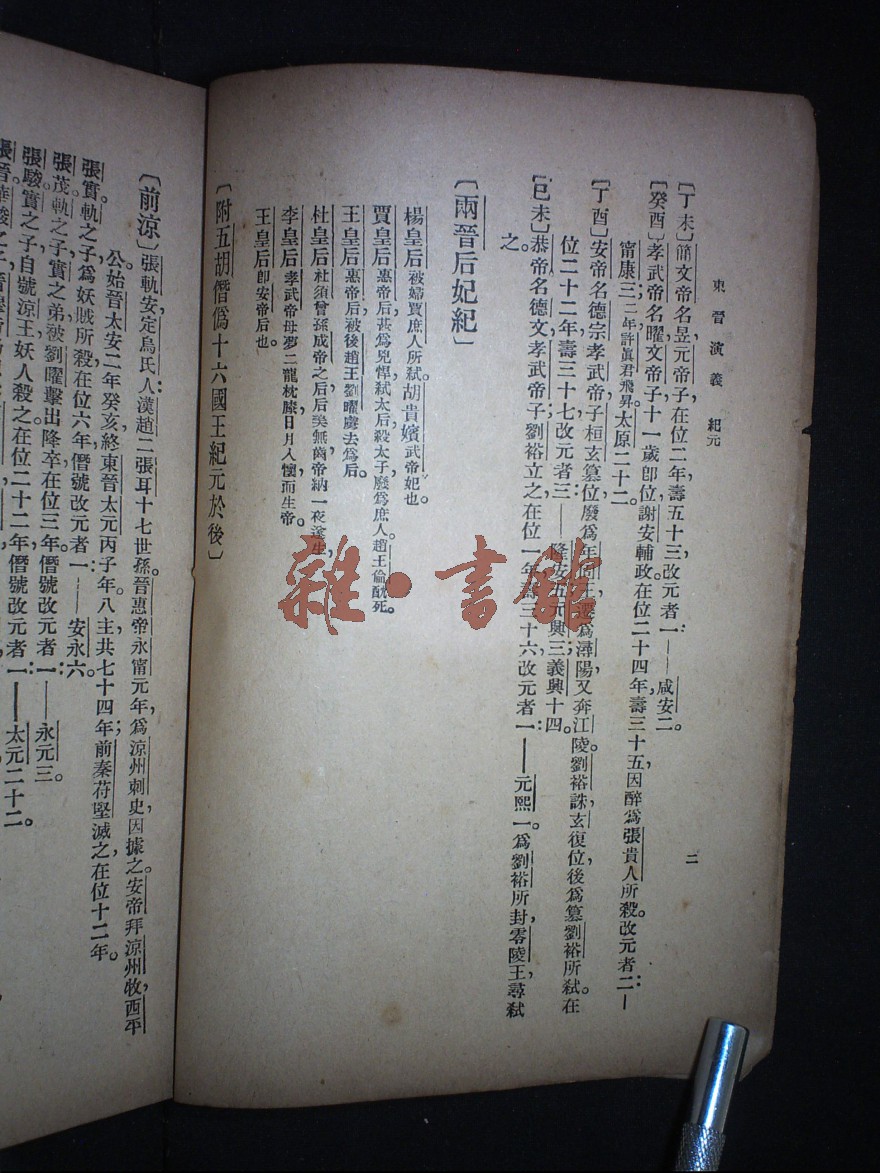 東晉演義 紀元
二
〔丁未〕簡文帝名昱，元帝子在位二年，壽五十三改元者一：——咸安二。
〔癸酉〕孝武帝名曜文帝子十一歲卽位，謝安輔政。在位二十四年，壽三十五，因醉爲張貴人所殺。改元者二—
甯康三；二年許眞君飛昇。太原二十二。
〔丁酉〕安帝名德宗孝武帝子桓玄篡位廢爲
遷爲潯陽又奔江陵。劉裕誅玄，復位後爲篡劉裕所弑。在
位二十二年，壽三十七，改元者三：——隆安五，元興三，義興十四。
〔已未〕恭帝名德文孝武帝子劉裕立之在位一年，壽三十六改元者一：——元熙一。爲劉裕所封零陵王，尋弑
之。
〔兩晉后妃紀〕
楊皇后被婦賈庶人所弑。胡貴嬪武帝妃也。
賈皇后惠帝后甚爲兇悍弑太后殺太子廢爲庶人趙王倫酖死。
王皇后惠帝后被後趙王劉曜虜去爲后。
杜皇后杜須曾孫成帝之后后美無齒帝納一夜
李皇后孝武帝母夢二龍枕膝日月入懷而生帝。
王皇后卽安帝后也
〔附五胡僭僞十六國王紀元於後〕
〔前涼〕張軌安定烏氏人漢趙二張耳十七世孫晉惠帝永甯元年，爲涼州刺史因據之。安帝拜涼州牧，西平
公始晉太安二年癸亥，終東晉太元丙子年。八主共七十四年；前秦苻堅滅之在位十二年。
張實軌之子爲妖賊所殺在位六年，僭號改元者一：——安永六。
張茂軌之子實之弟被劉曜擊出降卒在位三年。僭號改元者一：——永元三。
張駿實之子，自號涼王，妖人殺之在位二十二年，僭號改元者一：——太元二十二。
雜·書館